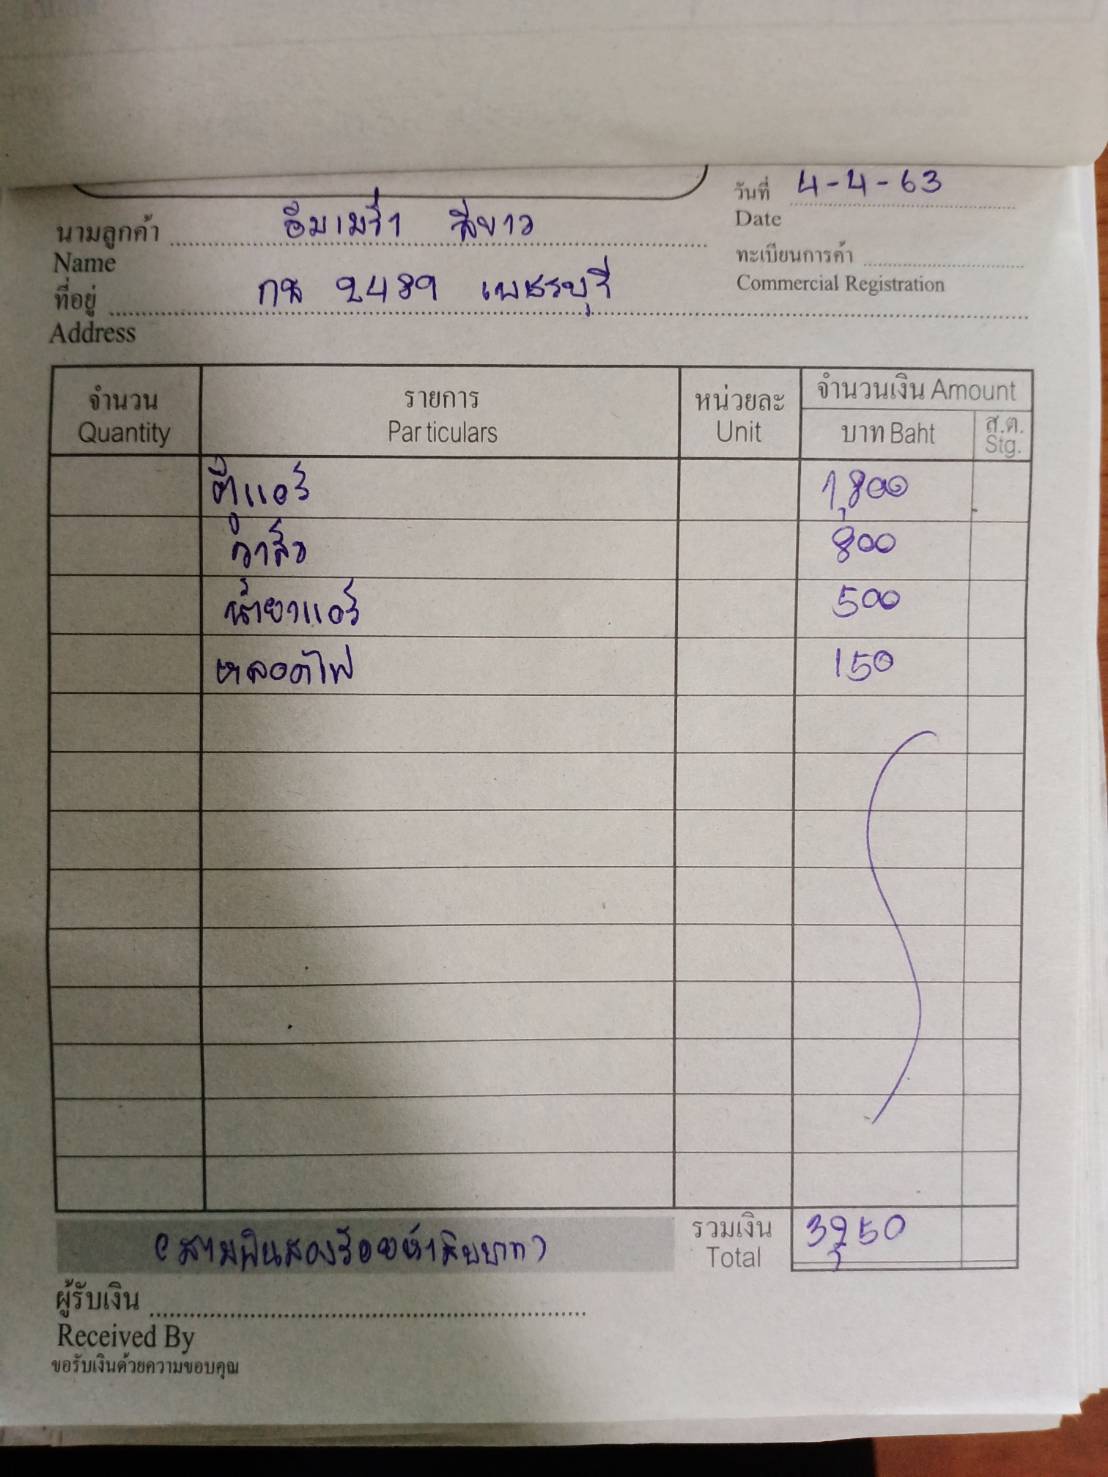 วันที่ 4-4-63
Date
นามลูกค้า อิมเมจ้า สีขาว
Name
ทะเบียนการค้า
Commercial Registration
ที่อยู่ กน 2489 เพชรบุรี
Address
จำนวน รายการ หน่วยละ จำนวนเงิน Amount
Quantity Particulars Unit บาท Baht ส.ต. Stg.
ตู้แอร์ 1,800
วาล์ว 800
น้ำยาแอร์ 500
หลอดไฟ 150
(สามพันสองร้อยห้าสิบบาท) รวมเงิน 3,250
Total
ผู้รับเงิน
Received By
ขอรับเงินด้วยความขอบคุณ